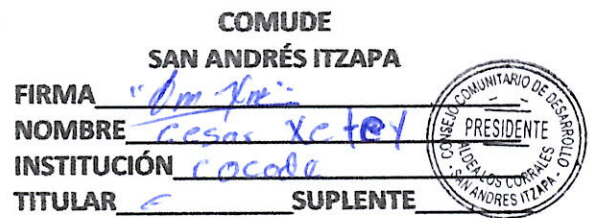 COMUDE
SAN ANDRÉS ITZAPA
FIRMA
NOMBRE cesar Xc
INSTITUCIÓN cocode
TITULAR SUPLENTE
CONSEJO COMUNITARIO DE DESARROLLO
PRESIDENTE
ALDEA LOS CORRALES
SAN ANDRES ITZAPA